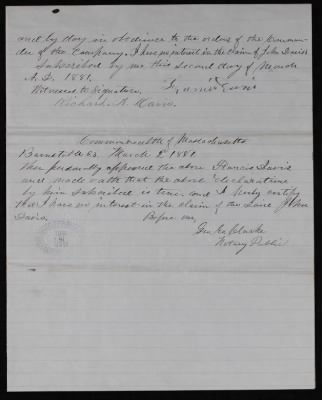 and by day in obedience to the orders of the Comman-
der of the Company, I have no interest in the claim of John Davis
Subscribed by me this second day of March
A.D. 1881.
Witnessed to Signature, Francis Davis
Richard A. Davis.
Commonwealth of Massachusetts
Barnstable ss. March 2d 1881
Then personally appeared the above Francis Davis
and made oath that the above declaration
by him subscribed is true, and I hereby certify
that I have no interest in the claim of the said John
Davis. Before me,
Geo. Clarke
Notary Public